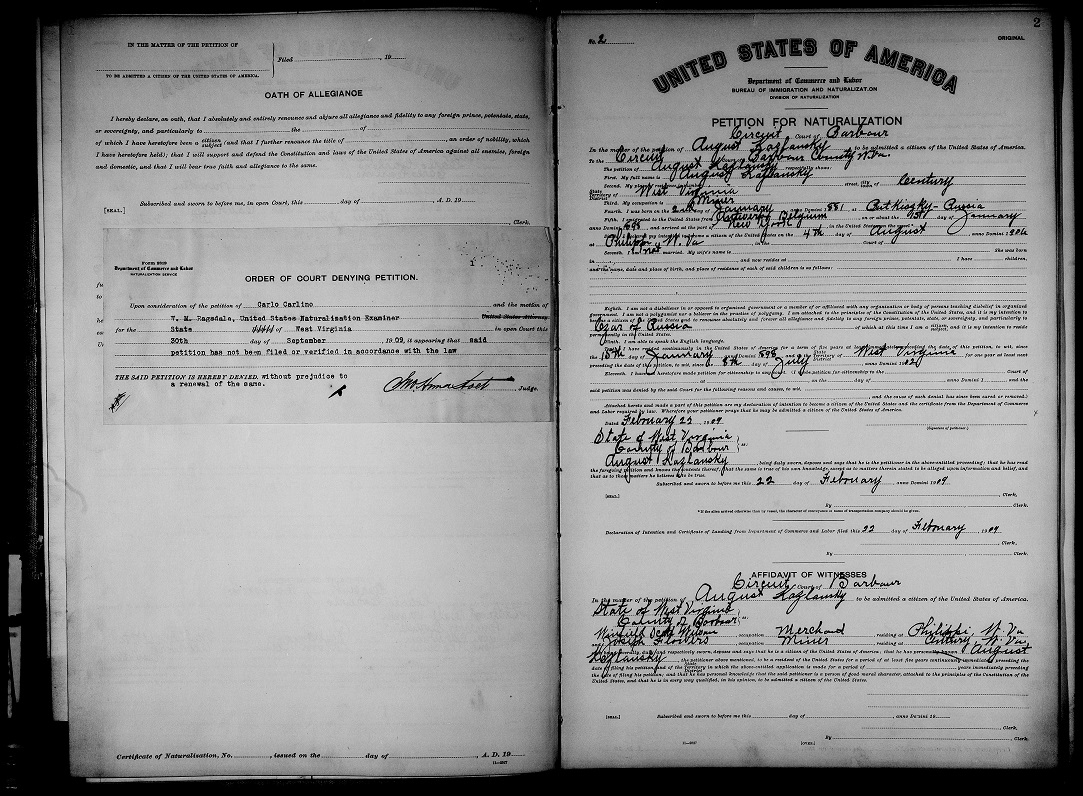 IN THE MATTER OF THE PETITION OF
Filed , 19
TO BE ADMITTED A CITIZEN OF THE UNITED STATES OF AMERICA.
OATH OF ALLEGIANCE
I hereby declare, on oath, that I absolutely and entirely renounce and abjure all allegiance and fidelity to any foreign prince, potentate, state,
or sovereignty, and particularly to the of
of which I have heretofore been a citizen subject (and that I further renounce the title of , an order of nobility, which
I have heretofore held); that I will support and defend the Constitution and laws of the United States of America against all enemies, foreign
and domestic, and that I will bear true faith and allegiance to the same.
Subscribed and sworn to before me, in open Court, this day of , A. D. 19
[SEAL.]
Clerk.
Department of Commerce and Labor
NATURALIZATION SERVICE
1
ORDER OF COURT DENYING PETITION.
Upon consideration of the petition of Carlo Carlino and the motion of
W. M. Ragsdale, United States Naturalization Examiner United States Attorney
for the State of West Virginia in open Court this
30th day of September 1909, it appearing that said
petition has not been filed or verified in accordance with the law
THE SAID PETITION IS HEREBY DENIED, without prejudice to
a renewal of the same.
Judge.
Certificate of Naturalization, No. , issued on the day of , A. D. 19
2
No. 2
ORIGINAL.
UNITED STATES OF AMERICA
Department of Commerce and Labor
BUREAU OF IMMIGRATION AND NATURALIZATION
DIVISION OF NATURALIZATION
PETITION FOR NATURALIZATION
Circuit Court of Barbour
In the matter of the petition of August Kazlansky to be admitted a citizen of the United States of America.
To the Circuit Court of Barbour County W. Va.
The petition of August Kazlansky respectfully shows:
First. My full name is August Kazlansky
Second. My place of residence is street, city of Century
State Territory of West Virginia
Third. My occupation is Miner
Fourth. I was born on the 2nd day of January anno Domini 1881 at Russia
Fifth. I emigrated to the United States from Antwerp Belgium on or about the day of January
anno Domini 1898, and arrived at the port of New York in the United States
to become a citizen of the United States on the 4th day of August, anno Domini 190
at Philippi W. Va in the Court of
Seventh. I am not married. My wife's name is She was born
in and now resides at I have children,
and the name, date and place of birth, and place of residence of each of said children is as follows:
Eighth. I am not a disbeliever in or opposed to organized government or a member of or affiliated with any organization or body of persons teaching disbelief in organized
government. I am not a polygamist nor a believer in the practice of polygamy. I am attached to the principles of the Constitution of the United States, and it is my intention to
become a citizen of the United States and to renounce absolutely and forever all allegiance and fidelity to any foreign prince, potentate, state, or sovereignty, and particularly to
Czar of Russia of which at this time I am a citizen subject, and it is my intention to reside
permanently in the United States.
Ninth. I am able to speak the English language.
Tenth. I have resided continuously in the United States of America for a term of five years at least immediately preceding the date of this petition, to wit, since
the 15th day of January, anno Domini 1898, and in the State Territory District of West Virginia for one year at least
preceding the date of this petition, to wit, since 8th day of July anno Domini 190
Eleventh. I have heretofore made petition for citizenship to the Court of
at on the day of , anno Domini 1 and the
said petition was denied by the said Court for the following reasons and causes, to wit,
, and the cause of such denial has since been cured or removed.)
Attached hereto and made a part of this petition are my declaration of intention to become a citizen of the United States and the certificate from the Department of Commerce
and Labor required by law. Wherefore your petitioner prays that he may be admitted a citizen of the United States of America.
Dated February 22, 1909
(Signature of petitioner.)
State of West Virginia
County of Barbour ss:
August Kazlansky, being duly sworn, deposes and says that he is the petitioner in the above-entitled proceeding; that he has read
the foregoing petition and knows the contents thereof; that the same is true of his own knowledge, except as to matters therein stated to be alleged upon information and belief, and
that as to those matters he believes it to be true.
Subscribed and sworn to before me this 22 day of February, anno Domini 1909
[SEAL.]
, Clerk.
By , Clerk.
Declaration of Intention and Certificate of Landing from Department of Commerce and Labor filed this 22 day of February, 1909
, Clerk.
By , Clerk.
AFFIDAVIT OF WITNESSES
Circuit Court of Barbour
In the matter of the petition of August Kazlansky to be admitted a citizen of the United States of America.
State of West Virginia
County of Barbour ss:
Winfield Scott Wilson, occupation Merchant residing at Philippi W. Va
and Joseph Flowers, occupation Miner, residing at Century W. Va
each being severally, duly, and respectively sworn, deposes and says that he is a citizen of the United States of America; that he has personally known August
Kazlansky, the petitioner above mentioned, to be a resident of the United States for a period of at least five years continuously immediately preceding the
date of filing his petition, and of the State Territory District in which the above-entitled application is made for a period of years immediately preceding
the date of filing his petition; and that he has personal knowledge that the said petitioner is a person of good moral character, attached to the principles of the Constitution of the
United States, and that he is in every way qualified, in his opinion, to be admitted a citizen of the United States.
[SEAL.]
Subscribed and sworn to before me this day of , anno Domini 19
, Clerk.
By , Clerk.
[OVER.]